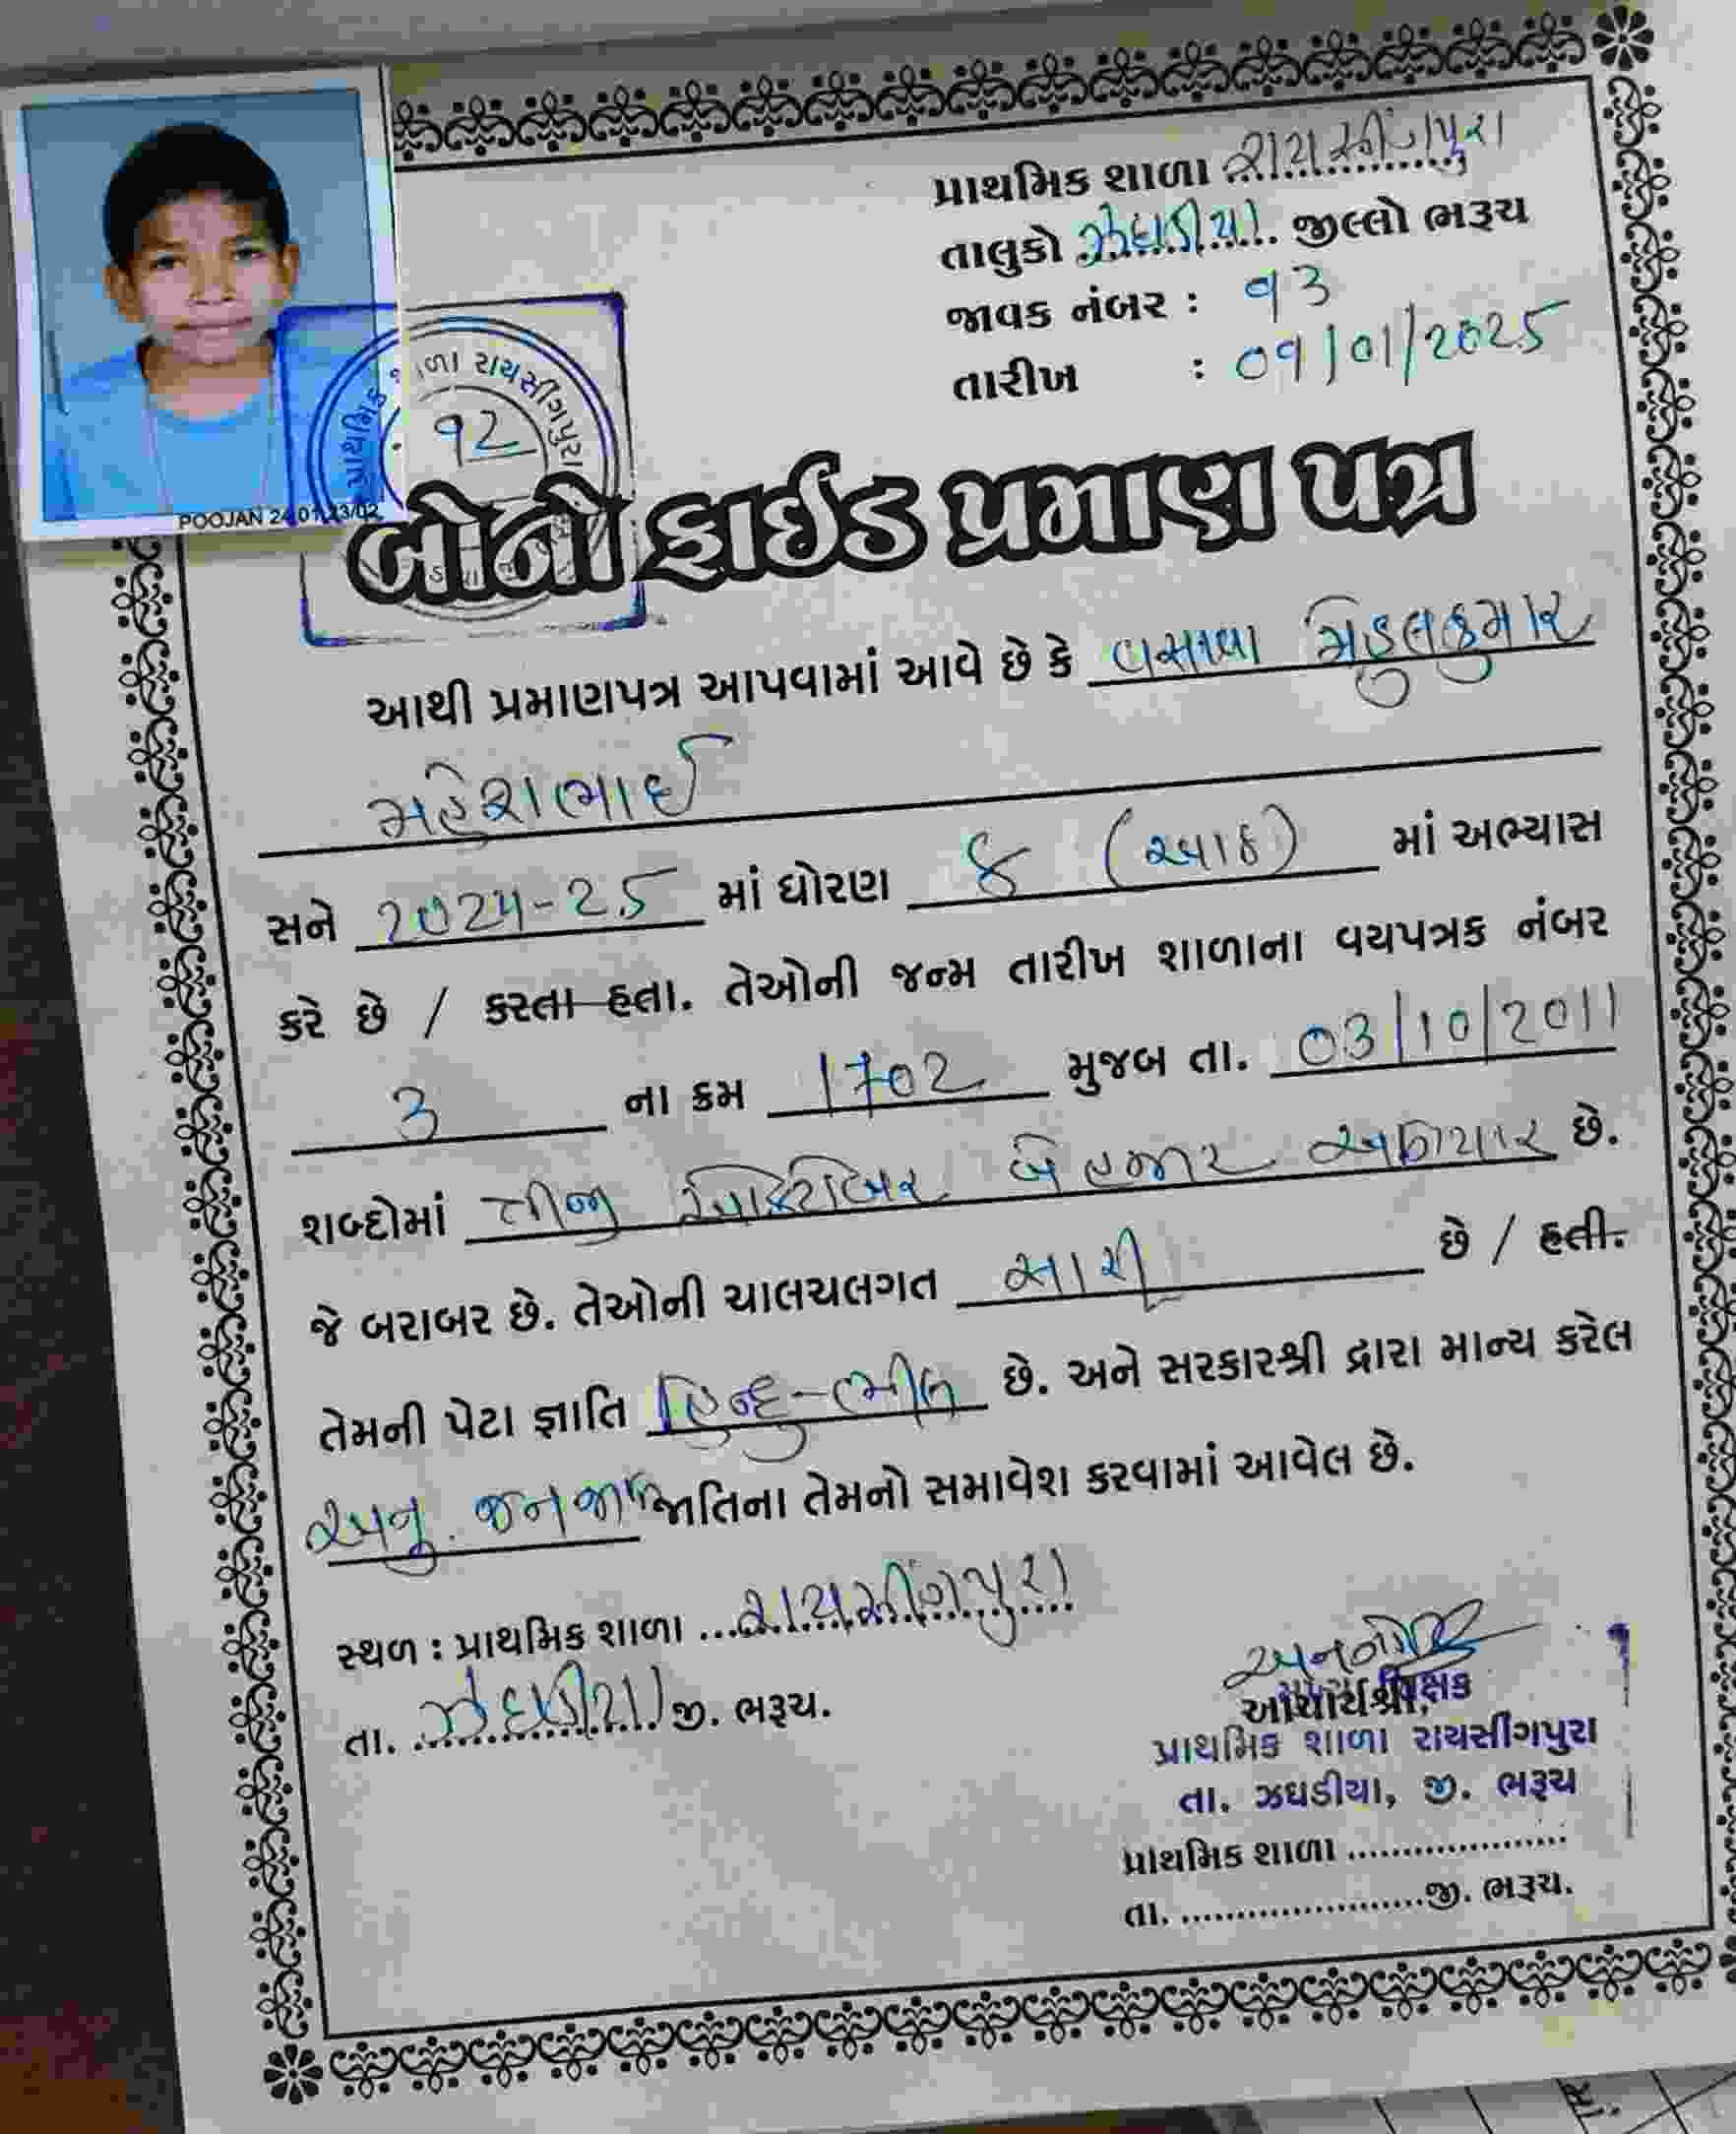 પ્રાથમિક શાળા રાયસીંગપુરા
તાલુકો ઝઘડીયા જીલ્લો ભરૂચ
જાવક નંબર : ૧૩
તારીખ : ૦૧/01/2025
પ્રાથમિક શાળા રાયસીંગપુરા
૧2
POOJAN 24.01.23/02
બોનોફાઈડ પ્રમાણ પત્ર
આથી પ્રમાણપત્ર આપવામાં આવે છે કે વસાવા મૃદુલકુમાર
મહેશભાઈ
સને ૨૦૨૪-૨5 માં ધોરણ ૮ (આઠ) માં અભ્યાસ
કરે છે / કરતા હતા. તેઓની જન્મ તારીખ શાળાના વયપત્રક નંબર
3 ના ક્રમ 1702 મુજબ તા. 03/10/2011
શબ્દોમાં ત્રીજી ઓક્ટોબર બે હજાર અગિયાર છે.
જે બરાબર છે. તેઓની ચાલચલગત સારી છે / હતી.
તેમની પેટા જ્ઞાતિ હિન્દુ-ભીલ છે. અને સરકારશ્રી દ્વારા માન્ય કરેલ
અનુ. જનજાતિ જાતિના તેમનો સમાવેશ કરવામાં આવેલ છે.
સ્થળ : પ્રાથમિક શાળા રાયસીંગપુરા
તા. ઝઘડીયા જી. ભરૂચ.
આચાર્યશ્રી,
પ્રાથમિક શાળા રાયસીંગપુરા
તા. ઝઘડીયા, જી. ભરૂચ
પ्રાથમિક શાળા ....................
તા. ......................જી. ભરૂચ.